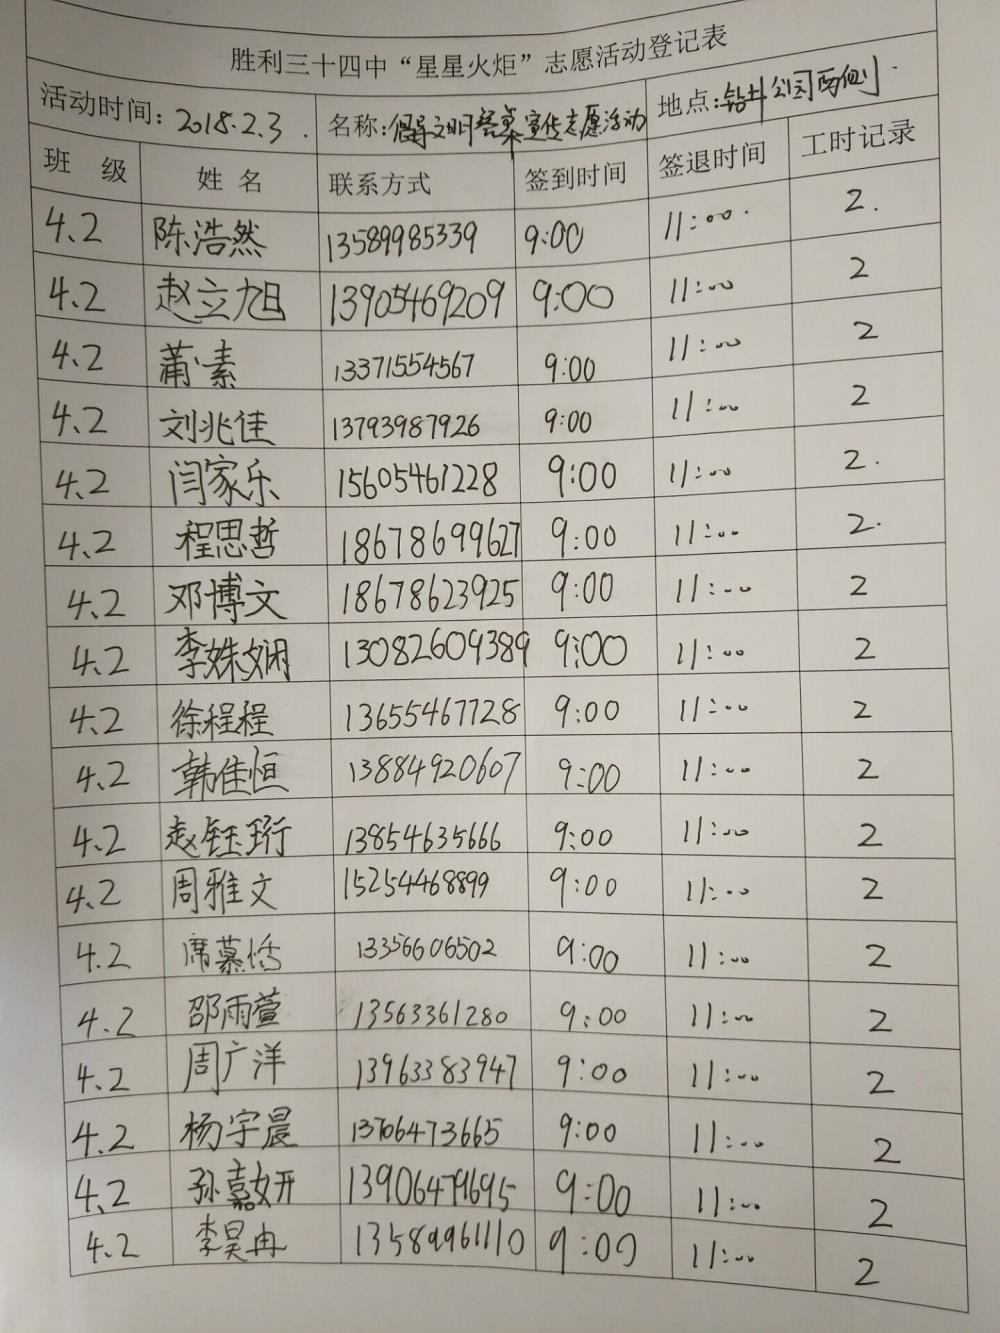 胜利三十四中“星星火炬”志愿活动登记表
活动时间：2018.2.3. 名称：倡导文明餐桌宣传志愿活动 地点：钻井公园两侧.
班 级 姓 名 联系方式 签到时间 签退时间 工时记录
4.2 陈浩然 13589985339 9:00 11:00. 2.
4.2 赵立旭 13905469209 9:00 11:00 2
4.2 莆素 13371554567 9:00 11:00 2
4.2 刘兆佳 13793987926 9:00 11:00 2
4.2 闫家乐 15605461228 9:00 11:00 2.
4.2 程思哲 18678699627 9:00 11:00 2.
4.2 邓博文 18678623925 9:00 11:00 2
4.2 李姝娴 13082609389 9:00 11:00 2
4.2 徐程程 13655467728 9:00 11:00 2
4.2 韩佳恒 13884920607 9:00 11:00 2
4.2 赵钰珩 13854635666 9:00 11:00 2
4.2 周雅文 15254468899 9:00 11:00 2
4.2 席慕恬 13356606502 9:00 11:00 2
4.2 邵雨萱 13563361280 9:00 11:00 2
4.2 周广洋 13963383947 9:00 11:00 2
4.2 杨宇晨 13706473665 9:00 11:00 2
4.2 孙嘉妍 13906479695 9:00 11:00 2
4.2 李昊冉 13589961110 9:00 11:00 2